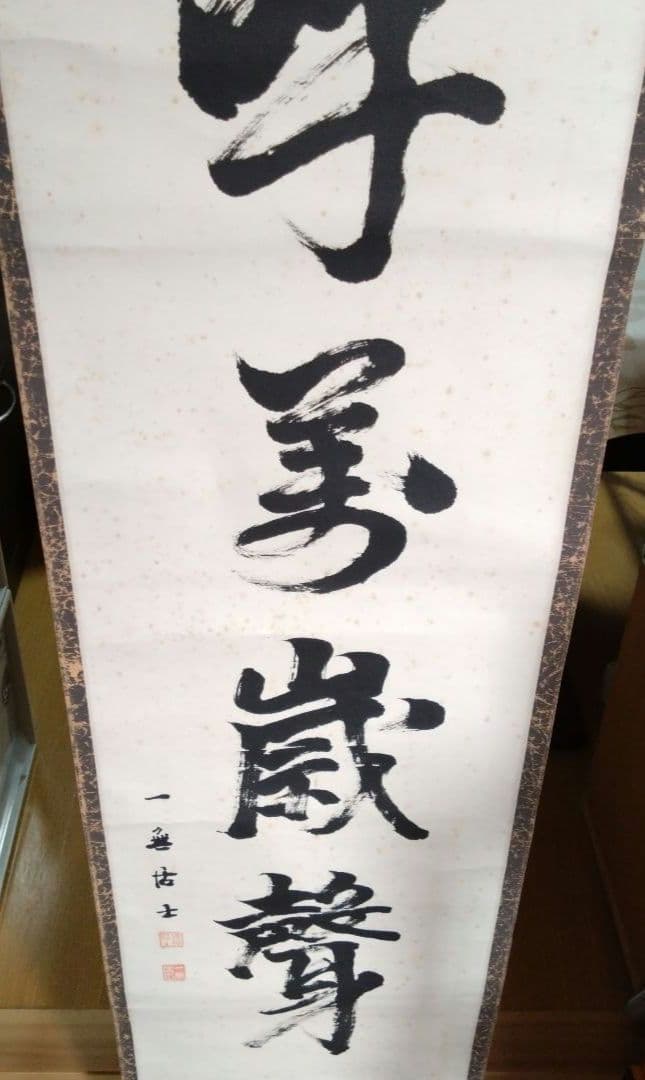 呼萬歳聲
一無居士